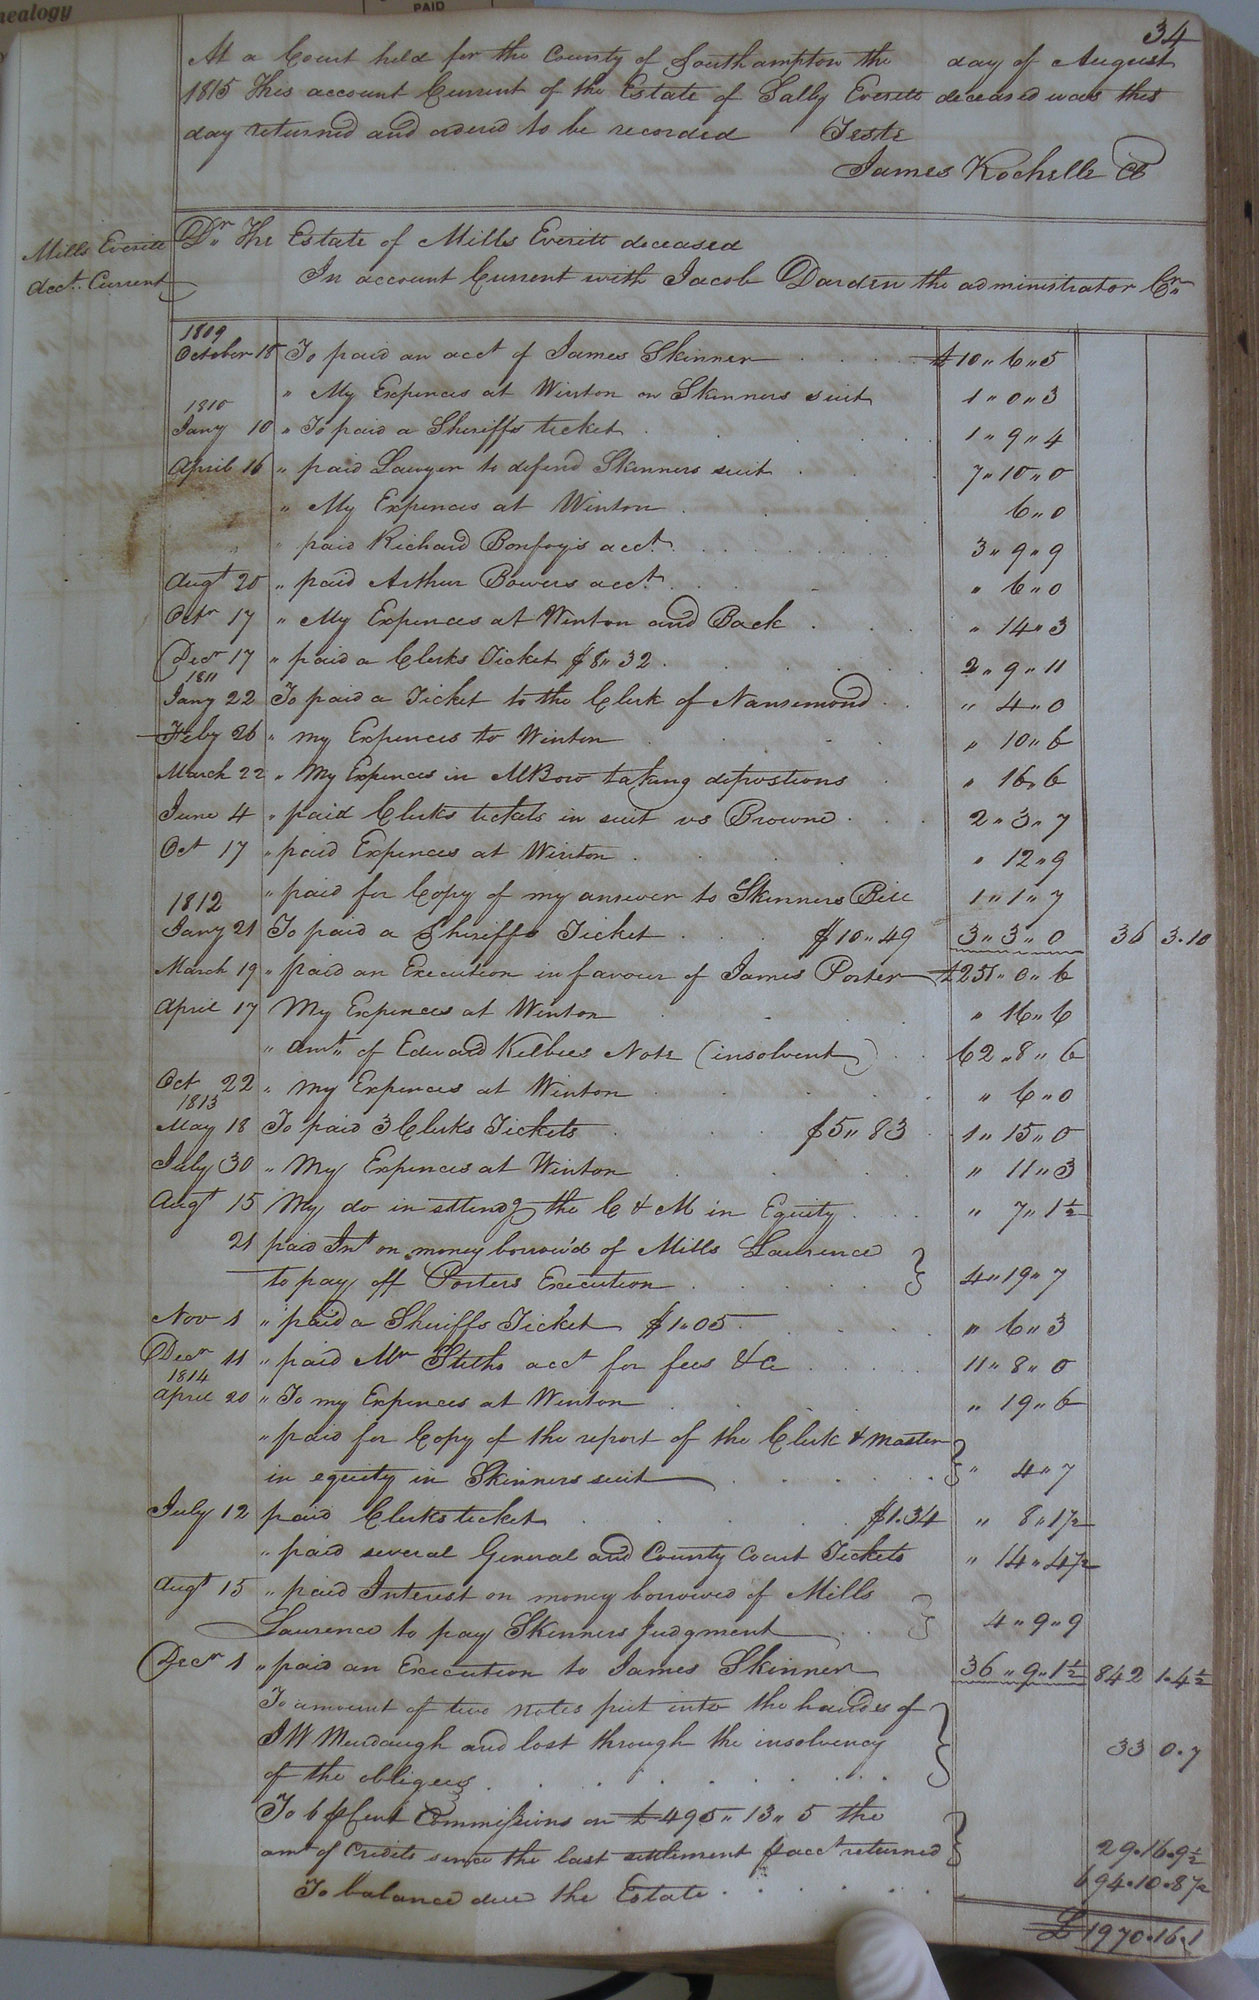 nealogy
PAID
34
At a Court held for the County of Southampton the day of August
1815 This account Current of the Estate of Sally Everitt deceased was this
day returned and ordered to be recorded Teste
James Rochelle
Mills Everitt
Acct. Current
Dr. The Estate of Mills Everitt deceased
In account Current with Jacob Darden the administrator Cr.
1809
October 18 To paid an acct of James Skinner £10 " 6 " 5
" My Expences at Winton on Skinners suit 1 " 0 " 3
1810
Jany 10 " To paid a Sheriffs ticket 1 " 9 " 4
April 16 " paid Lawyer to defend Skinners suit 7 " 10 " 0
" My Expences at Winton 6 " 0
" paid Richard acct. 3 " 9 " 9
Augt 20 " paid Arthur Bowers acct. " 6 " 0
Octr 17 " My Expences at Winton and Back " 14 " 3
Decr 17 " paid a Clerks Ticket $8 " 32 2 " 9 " 11
1811
Jany 22 To paid a Ticket to the Clerk of Nansemond " 4 " 0
Feby 26 " my Expences to Winton " 10 " 6
March 22 " My Expences in taking depostions " 16 " 6
June 4 " paid Clerks tickets in suit vs Browne 2 " 3 " 7
Oct 17 " paid Expences at Winton " 12 " 9
" paid for Copy of my answer to Skinners Bill 1 " 1 " 7
1812
Jany 21 To paid a Sheriffs Ticket $10 " 49 3 " 3 " 0 36 3 . 10
March 19 " paid an Execution in favour of James Porter " 0 " 6
April 17 My Expences at Winton " 16 " 6
" amt. of Edward Kelbees Note (insolvent) 62 " 8 " 6
Oct 22 " my Expences at Winton " 6 " 0
1813
May 18 To paid 3 Clerks Tickets $5 " 83 1 " 15 " 0
July 30 " My Expences at Winton " 11 " 3
Augt 15 My do in attendg the C & M in Equity " 7 " 1½
21 paid Int on money borrow'd of Mills Laurence
to pay off Porters Execution 4 " 19 " 7
Nov 1 " paid a Sheriffs Ticket $1 " 05 " 6 " 3
Decr 11 " paid Mr Steths acct for fees &c 11 " 8 " 0
1814
April 20 " To my Expences at Winton " 19 " 6
" paid for Copy of the report of the Clerk & Master
in equity in Skinners suit " 4 " 7
July 12 paid Clerks ticket $1.34 " 8 " 1½
" paid several General and County Court Tickets " 14 " 4½
Augt 15 " paid Interest on money borrowed of Mills
Laurence to pay Skinners Judgment 4 " 9 " 9
Decr 1 " paid an Execution to James Skinner 36 " 9 " 1½ 842 1 . 4½
To amount of two notes put into the hands of
J W Murdaugh and lost through the insolvency
of the obligees 33 0 . 7
To 6 pCent Commissions on £495 " 13 " 5 the
amt of Credits since the last settlement pacct returned 29 . 16 . 9½
To balance due the Estate 694 . 10 . 8½
£1970 . 16 . 1